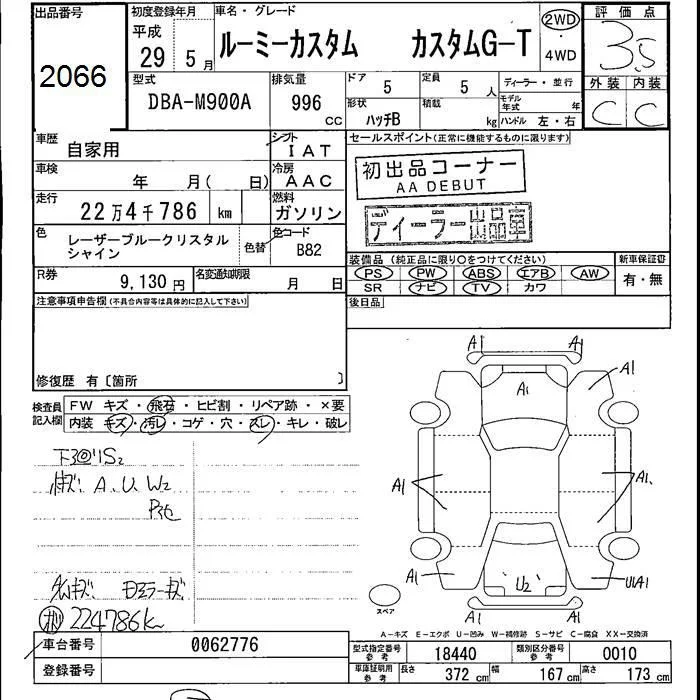 出品番号
2066
初度登録年月
平成
29年 5月
車名・グレード
ルーミーカスタム カスタムG-T
2WD
・
4WD
評価点
3.5
外装 内装
C C
型式
DBA-M900A
排気量
996 CC
ドア 5
定員 5 人
形状 ハッチB
積載 kg
ディーラー・並行
モデル年式 年
ハンドル 左・右
車歴
自家用
シフト
I AT
車検
年 月( 日)
冷房
AAC
走行
22万4千786 km
燃料
ガソリン
色
レーザーブルークリスタル
シャイン
色替
色コード
B82
R券
9,130円
名変通知期限
月 日
セールスポイント(正常に機能するものに限ります)
初出品コーナー
AA DEBUT
ディーラー出品車
装備品 (純正品に限り○をつけてください)
PS PW ABS エアB AW
SR ナビ TV カワ
新車保証書
有・無
後日品
注意事項申告欄(不具合内容等は具体的に記入して下さい)
修復歴 有〔箇所 〕
検査員
記入欄
FW キズ・飛石・ヒビ割・リペア跡・×要
内装 キズ・汚レ・コゲ・穴・スレ・キレ・破レ
A、U、W2
224786k
A1 A1
A1 A1
A1 A1、
A1 U2 U1A1
A1 A1
スペア
A-キズ E-エクボ U-凹み W-補修跡 S-サビ C-腐食 XX-交換済
車台番号 0062776
登録番号
型式指定番号
参考
18440
類別区分番号
参考
0010
車庫証明用
参考
長さ 372 cm 幅 167 cm 高さ 173 cm